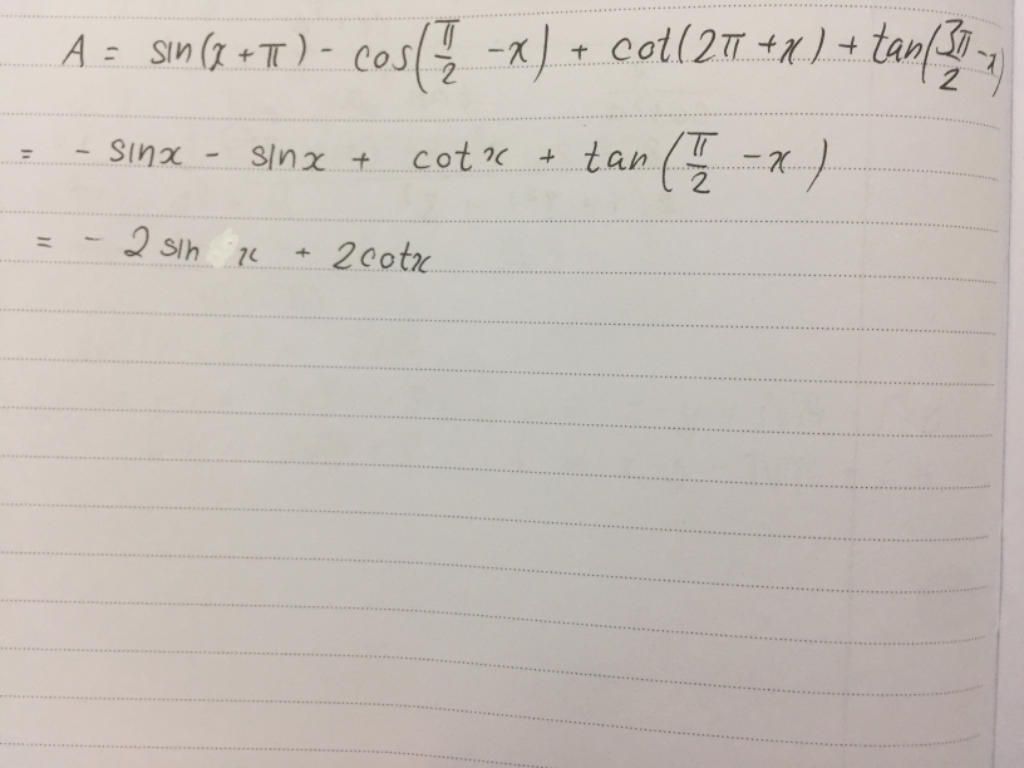 A = sin(x + π) - cos(π/2 - x) + cot(2π + x) + tan(3π/2 - x)
= - sinx - sinx + cotx + tan(π/2 - x)
= - 2 sin x + 2cotx